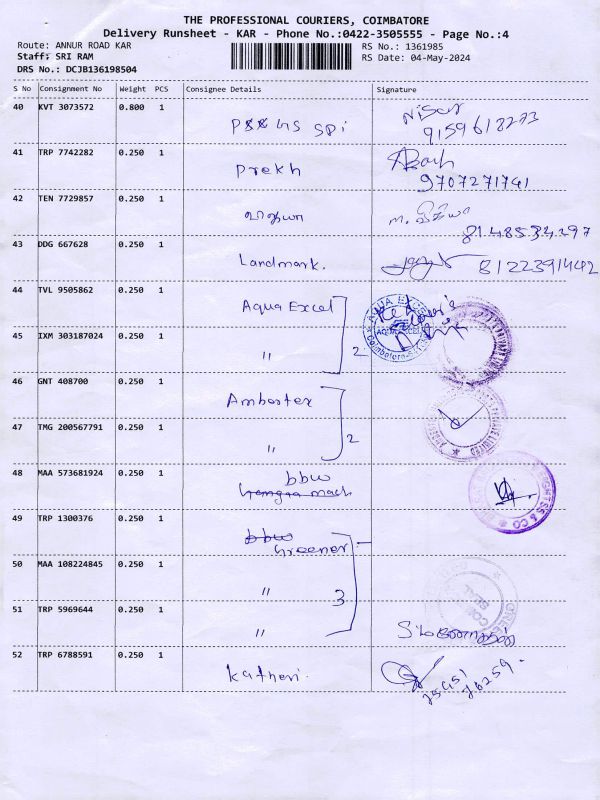 THE PROFESSIONAL COURIERS, COIMBATORE
Delivery Runsheet - KAR - Phone No.:0422-3505555 - Page No.:4
Route: ANNUR ROAD KAR
RS No.: 1361985
Staff: SRI RAM
RS Date: 04-May-2024
DRS No.: DCJB136198504
S No Consignment No Weight PCS Consignee Details Signature
40 KVT 3073572 0.800 1
SPi
9159618273
41 TRP 7742282 0.250 1 Prekh
9707271741
42 TEN 7729857 0.250 1
8148534297
43 DDG 667628 0.250 1 Landmark. 8122391442
44 TVL 9505862 0.250 1 Aqua Excel
45 IXM 303187024 0.250 1 " 2
46 GNT 408700 0.250 1 Ambortex
47 TMG 200567791 0.250 1 " 2
48 MAA 573681924 0.250 1 bbw
49 TRP 1300376 0.250 1 bbw
Greener
50 MAA 108224845 0.250 1 " 3
51 TRP 5969644 0.250 1 "
52 TRP 6788591 0.250 1 Katheri.